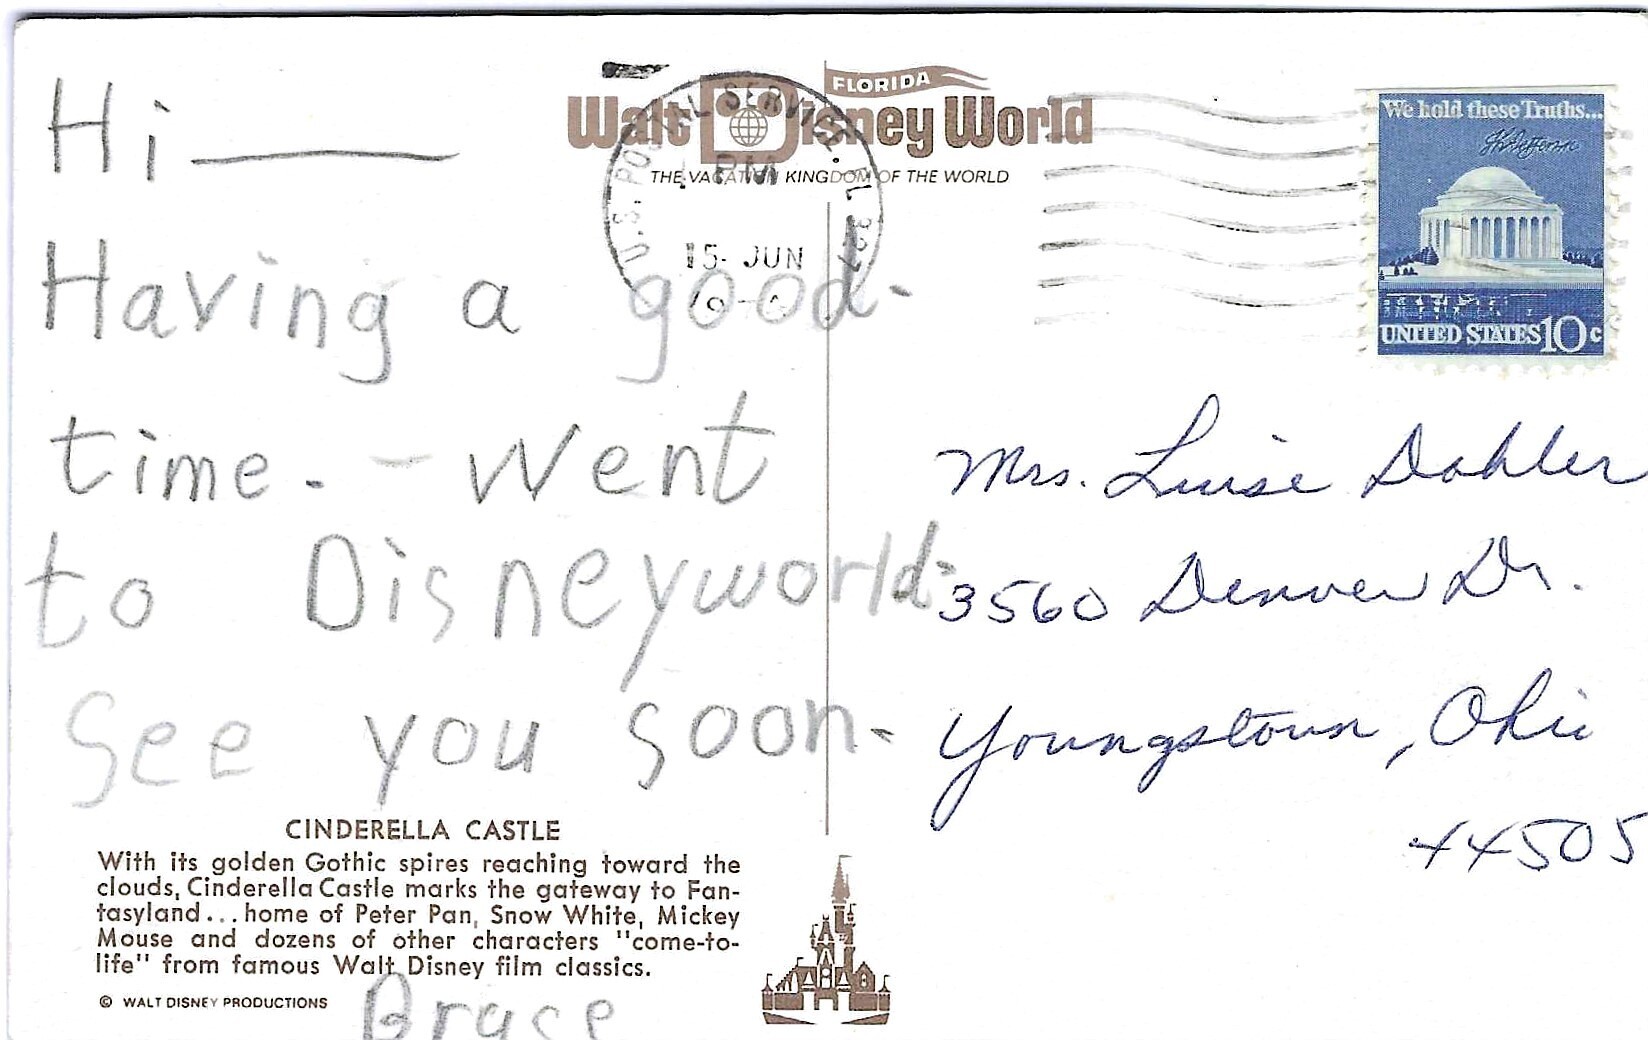 Hi ———
Having a good.
time. - Went
to Disneyworld.
See you soon.
FLORIDA
Walt Disney World
THE VACATION KINGDOM OF THE WORLD
U.S. POSTAL SERVICE. FL
PM
15 JUN
We hold these Truths...
UNITED STATES 10c
Mrs. Luise Dahler
3560 Denver Dr.
Youngstown, Ohio
44505
CINDERELLA CASTLE
With its golden Gothic spires reaching toward the
clouds, Cinderella Castle marks the gateway to Fan-
tasyland... home of Peter Pan, Snow White, Mickey
Mouse and dozens of other characters "come-to-
life" from famous Walt Disney film classics.
© WALT DISNEY PRODUCTIONS